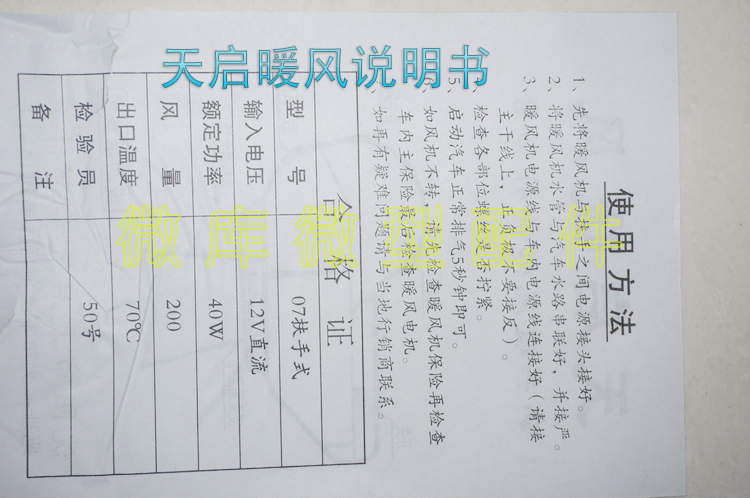 天启暖风说明书
使用方法
1、先将暖风机与扶手之间电源接头接好。
2、将暖风机水管与汽车水路串联好，并接严。
3、暖风机电源线与车内电源线连接好（请接
主干线上，正负极不要接反）。
检查各部位螺丝是否拧紧。
5、启动汽车正常排气5秒钟即可。
6、如风机不转，请先检查暖风机保险再检查
车内主保险最后检查暖风电机。
、如再有疑难问题请与当地行销商联系。
合格证
型号 07扶手式
输入电压 12V直流
额定功率 40W
风量 200
出口温度 70℃
检验员 50号
备注
微库微型配件